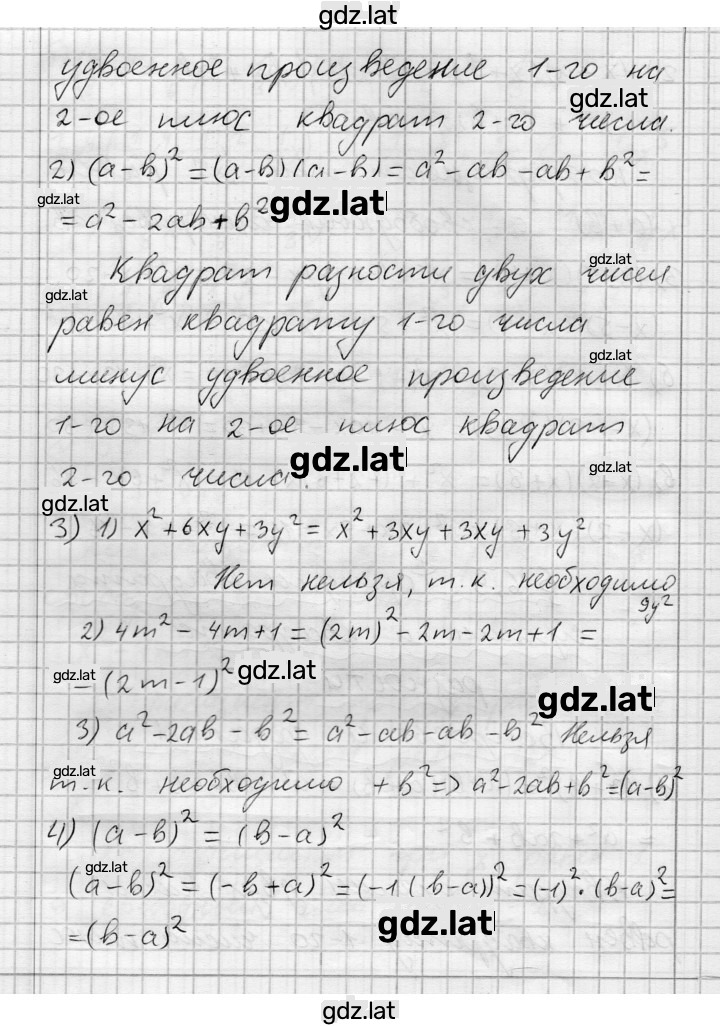 gdz.lat
удвоенное произведение 1-го на
gdz.lat
2-ое плюс квадрат 2-го числа.
2) (a-b)² = (a-b)(a-b) = a² - ab - ab + b² =
gdz.lat gdz.lat
= a² - 2ab + b²
Квадрат разности двух чисел gdz.lat
gdz.lat
равен квадрату 1-го числа
gdz.lat
минус удвоенное произведение
1-го на 2-ое плюс квадрат
gdz.lat gdz.lat
2-го числа.
gdz.lat
3) 1) x² + 6xy + 3y² = x² + 3xy + 3xy + 3y²
Нет нельзя, т.к. необходимо
9y²
2) 4m² - 4m + 1 = (2m)² - 2m - 2m + 1 =
gdz.lat gdz.lat
= (2m-1)²
gdz.lat
3) a² - 2ab - b² = a² - ab - ab - b² Нельзя
gdz.lat
т.к. необходимо + b² => a² - 2ab + b² = (a-b)²
4) (a-b)² = (b-a)²
gdz.lat
(a-b)² = (-b+a)² = (-1(b-a))² = (-1)² · (b-a)² =
= (b-a)² gdz.lat
gdz.lat